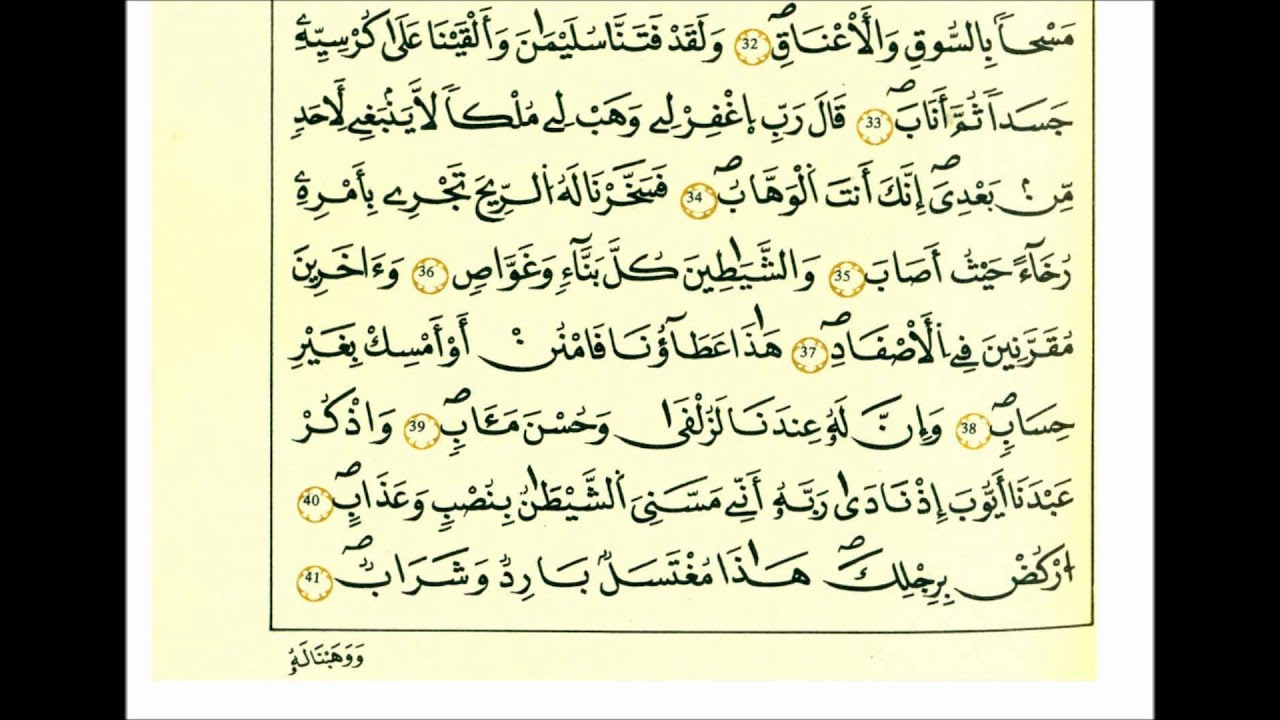 مَسْحاَۢ بِالسُّوقِ وَالْأَعْنَاقِۖ 32 وَلَقَدْ فَتَنَّا سُلَيْمَٰنَ وَأَلْقَيْنَا عَلَىٰ كُرْسِيِّهِۦ
جَسَداٗ ثُمَّ أَنَابَۖ 33 قَالَ رَبِّ اِ۪غْفِرْ لِے وَهَبْ لِے مُلْكاٗ لَّا يَنۢبَغِے لِأَحَدٖ
مِّنۢ بَعْدِيَۖ إِنَّكَ أَنتَ اَ۬لْوَهَّابُۖ 34 فَسَخَّرْنَا لَهُ اُ۬لرِّيحَ تَجْرِے بِأَمْرِهِۦ
رُخَآءً حَيْثُ أَصَابَۖ 35 وَالشَّيَٰطِينَ كُلَّ بَنَّآءٖ وَغَوَّاصٖ 36 وَءَاخَرِينَ
مُقَرَّنِينَ فِے اِ۬لْأَصْفَادِۖ 37 هَٰذَا عَطَآؤُنَا فَامْنُنْ أَوْ أَمْسِكْ بِغَيْرِ
حِسَابٖۖ 38 وَإِنَّ لَهُۥ عِندَنَا لَزُلْفَىٰ وَحُسْنَ مَـَٔابٖۖ 39 وَاذْكُرْ
عَبْدَنَا أَيُّوبَ إِذْ نَادَىٰ رَبَّهُۥ أَنِّے مَسَّنِيَ اَ۬لشَّيْطَٰنُ بِنُصْبٖ وَعَذَابٍۖ 40
اُ۟رْكُضْ بِرِجْلِكَۖ هَٰذَا مُغْتَسَلُۢ بَارِدٞ وَشَرَابٞۖ 41
وَوَهَبْنَا لَهُۥ